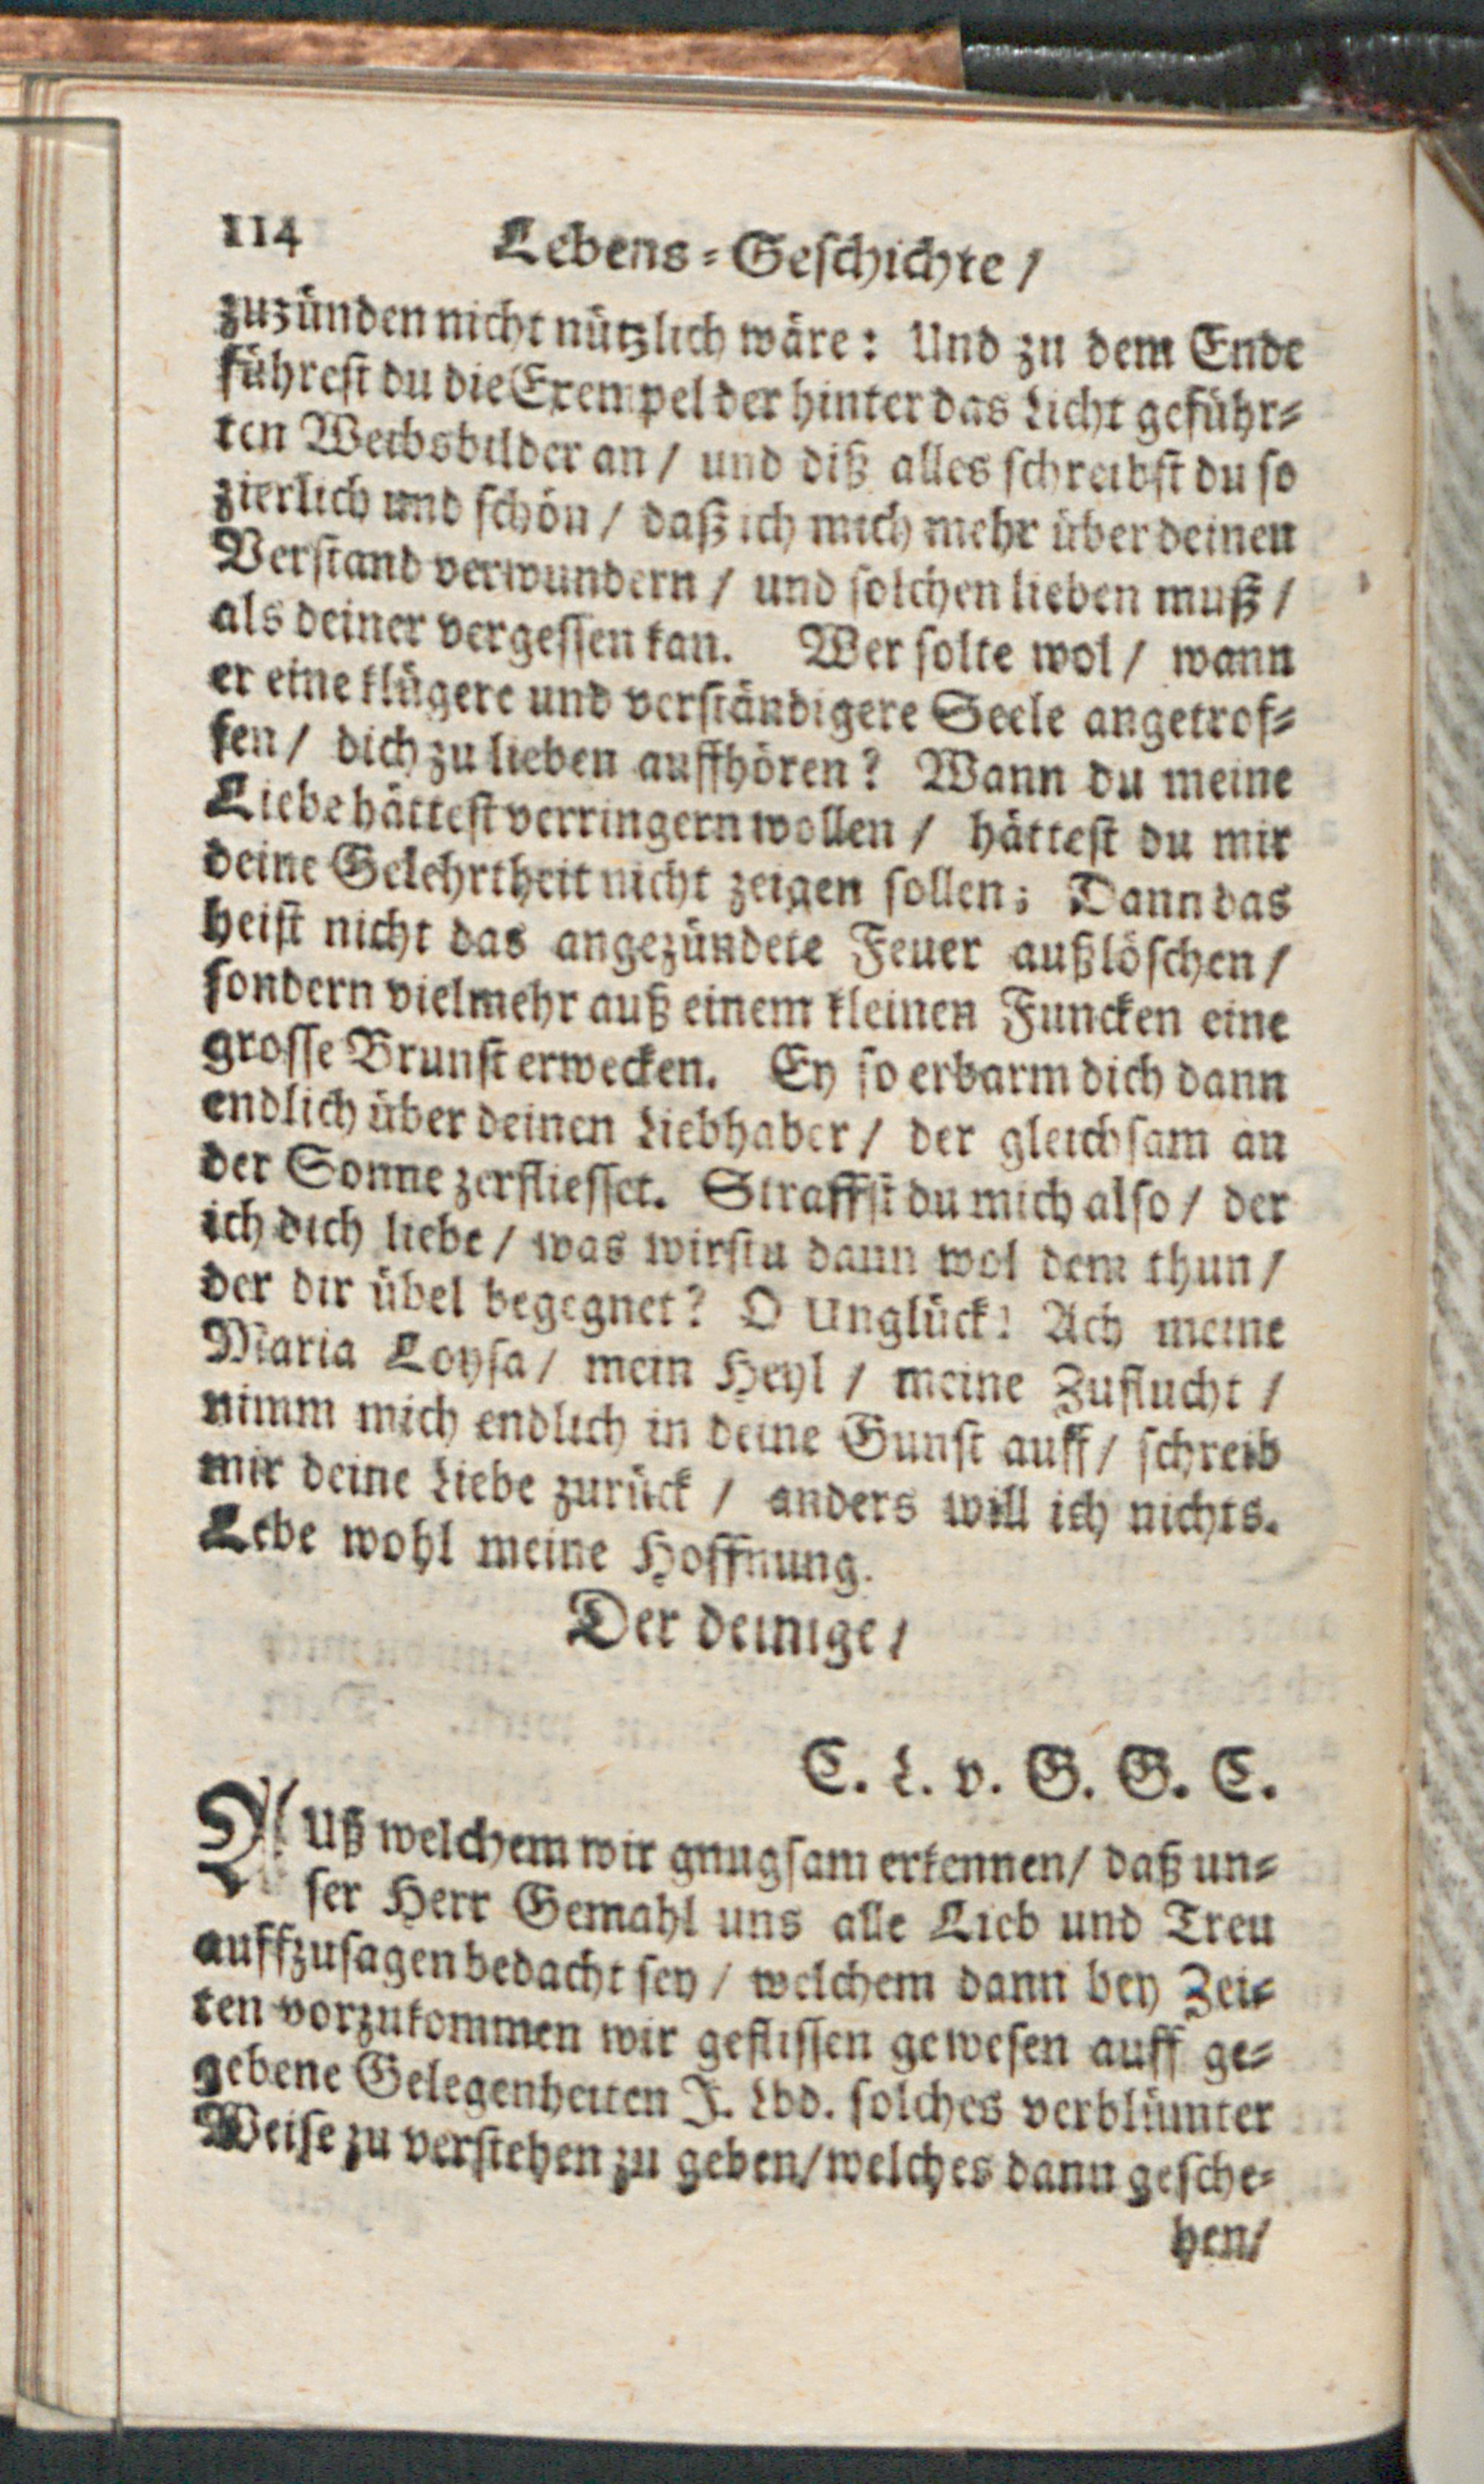 114 Lebens-Geschichte /
zuzünden nicht nützlich wäre: Und zu dem Ende
führest du die Exempel der hinter das Licht geführ-
ten Weibsbilder an / und diß alles schreibst du so
zierlich und schön / daß ich mich mehr über deinen
Verstand verwundern / und solchen lieben muß /
als deiner vergessen kan. Wer solte wol / wann
er eine klügere und verständigere Seele angetrof-
fen / dich zu lieben auffhören? Wann du meine
Liebe hättest verringern wollen / hättest du mir
deine Gelehrtheit nicht zeigen sollen; Dann das
heist nicht das angezündete Feuer außlöschen /
sondern vielmehr auß einem kleinen Funcken eine
grosse Brunst erwecken. Ey so erbarm dich dann
endlich über deinen Liebhaber / der gleichsam an
der Sonne zerfliesset. Straffst du mich also / der
ich dich liebe / was wirstu dann wol dem thun /
der dir übel begegnet? O Unglück! Ach meine
Maria Loysa / mein Heyl / meine Zuflucht /
nimm mich endlich in deine Gunst auff / schreib
mir deine Liebe zurück / anders will ich nichts.
Lebe wohl meine Hoffnung.
Der deinige /
C. L. v. G. G. C.
Auß welchem wir gnugsam erkennen / daß un-
ser Herr Gemahl uns alle Lieb und Treu
auffzusagen bedacht sey / welchem dann bey Zei-
ten vorzukommen wir geflissen gewesen auff ge-
gebene Gelegenheiten J. Lbd. solches verblümter
Weise zu verstehen zu geben / welches dann gesche-
hen /